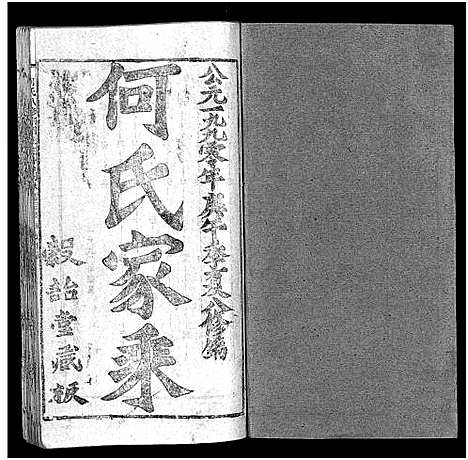 公元一九九零年庚午季夏八修編
何氏家乘
報詒堂藏板